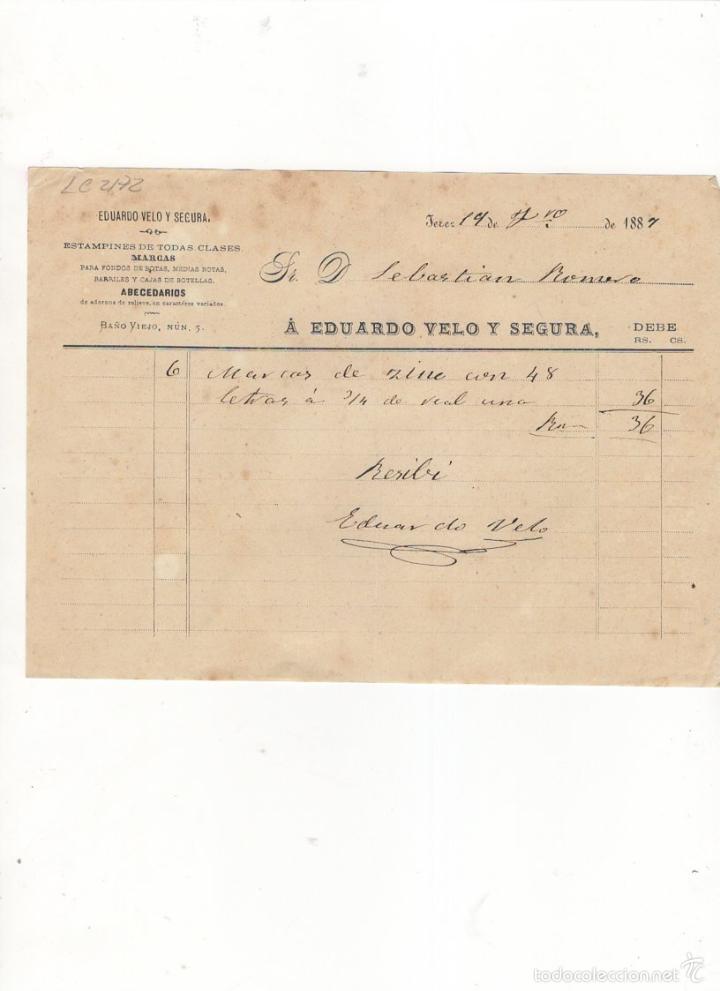 LC 2172
EDUARDO VELO Y SEGURA.
ESTAMPINES DE TODAS CLASES
MARCAS
PARA FONDOS DE BOTAS, MEDIAS BOTAS,
BARRILES Y CAJAS DE BOTELLAS.
ABECEDARIOS
de adornos de relieve, en caractéres variados.
BAÑO VIEJO, NÚM. 5.
Jerez 14 de de 1887
Sr. D Sebastian Romero
Á EDUARDO VELO Y SEGURA, DEBE
RS. CS.
6 Marcas de zinc con 48
letras á 3/4 de real una 36
Rvn 36
Resibi
Eduardo Velo
todocoleccion.net